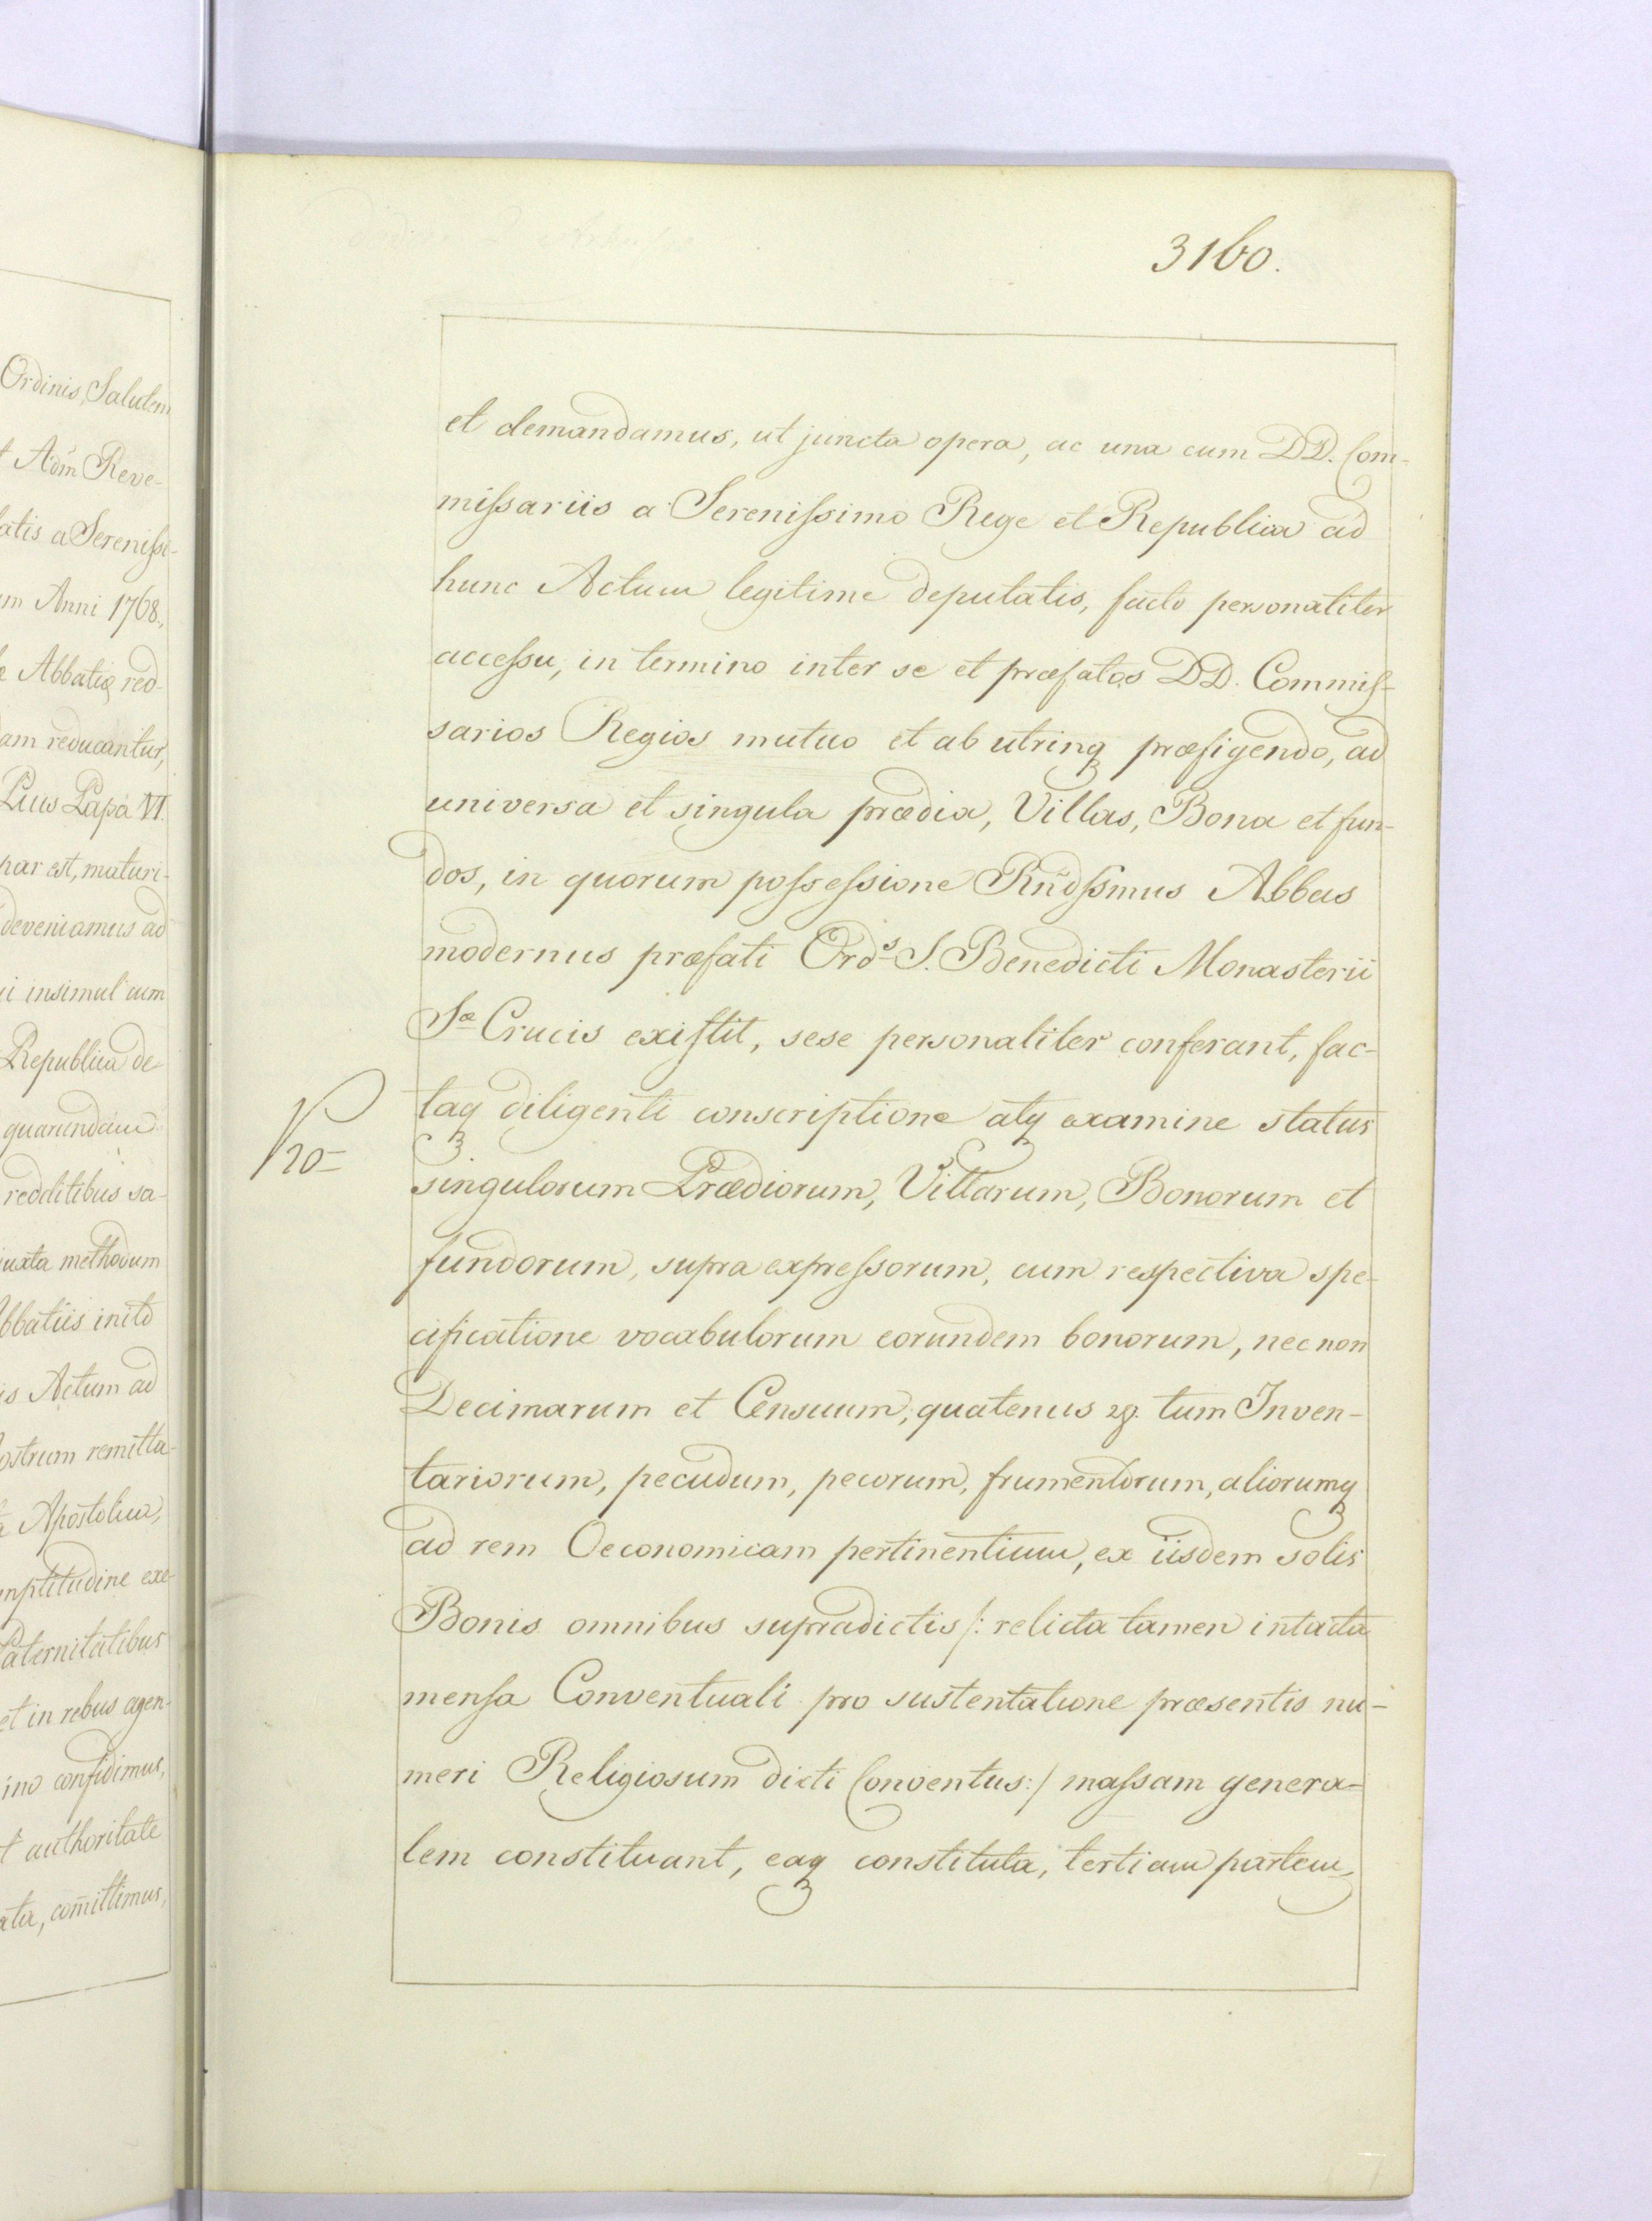 Ordinis, Salutem
Adm̃ Reve-
latis a Serenissi-
Anni 1768.,
Abbatię red-
am reducantur,
Pius Papa VI.
par est, maturi-
deveniamus ad
insimul cum
Republica de-
quarundam
redditibus sa-
juxta methodum
Abbatiis inito
Actum ad
nostrum remitta-
Apostolica,
amplitudine exe-
Paternitatibus
et in rebus agen-
confidimus,
authoritate
com̃ittimus,
3160.
et demandamus, ut juncta opera, ac una cum DD. Com-
missariis a Serenissimo Rege et Republica ad
hunc Actum legitime deputatis, facto personaliter
accessu, in termino inter se et præfatos DD. Commis-
sarios Regios mutuo et ab utrinq præfigendo, ad
universa et singula prædia, Villas, Bona et fun-
dos, in quorum possessione Rñdssmus Abbas
modernus præfati Ord.s S. Benedicti Monasterii
Sæ Crucis existit, sese personaliter conferant, fac-
taq diligenti conscriptione atq examine status
singulorum Prædiorum, Villarum, Bonorum et
fundorum, supra expressorum, cum respectiva spe-
cificatione vocabulorum eorundem bonorum, nec non
Decimarum et Censuum, quatenus tum Inven-
tariorum, pecudum, pecorum, frumentorum, aliorumq
ad rem Oeconomicam pertinentium, ex iisdem solis
Bonis omnibus supradictis /: relicta tamen intacta
mensa Conventuali pro sustentatione præsentis nu-
meri Religiosum dicti Conventus :/ massam genera-
lem constituant, eaq constituta, tertiam partem